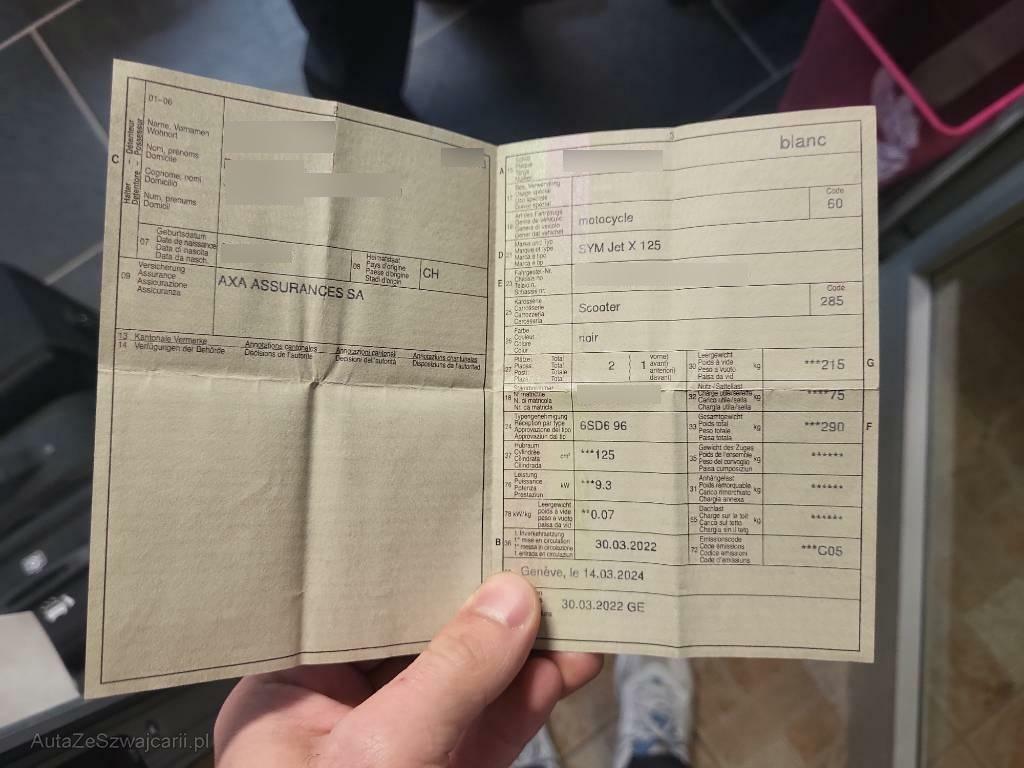 01-06
Halter Détenteur
Detentore Possessur
C
Name, Vornamen
Wohnort
Nom, prénoms
Domicile
Cognome, nomi
Domicilio
Num, prenums
Domicil
07
Geburtsdatum
Date de naissance
Data di nascita
Data da nasch.
08
Heimatstaat
Pays d'origine
Paese d'origine
Stadi d'origin
CH
09
Versicherung
Assurance
Assicurazione
Assicuranza
AXA ASSURANCES SA
13 Kantonale Vermerke Annotations cantonales Annotazioni cantonali Annotaziuns chantunalas
14 Verfügungen der Behörde Décisions de l'autorité Decisioni dell'autorità Disposiziuns da l'autoritad
3
A 15
blanc
17 Bes. Verwendung
Usage spécial
Uso speciale
19 Art des Fahrzeugs
Genre de véhicule
Genere di veicolo
motocycle
Code
60
D 21 Marke und Typ
Marque et type
Marca e tipo
Marca e tip
SYM Jet X 125
E 23 Fahrgestell-Nr.
Châssis no
Telaio n.
Schassis nr.
25 Karosserie
Carrosserie
Carrozzeria
Carosseria
Scooter
Code
285
26 Farbe
Couleur
Colore
Colur
noir
27 Plätze: Total
Places: Total
Posti: Totale
Plazs: Total
2 { 1 vorne)
avant)
anteriori)
davant)
30 Leergewicht
Poids à vide
Peso a vuoto
Paisa da vid
kg
***215
G
18
N° matricule
N. di matricola
Nr. da matricla
32 Nutz-/Sattellast
Charge utile/sellette
Carico utile/sella
Chargia utila/sella
kg
****75
24 Typengenehmigung
Réception par type
Approvazione del tipo
Approvaziun dal tip
6SD6 96
33 Gesamtgewicht
Poids total
Peso totale
Paisa totala
kg
***290
F
37 Hubraum
Cylindrée
Cilindrata
Cilindrada
cm³
***125
35 Gewicht des Zuges
Poids de l'ensemble
Peso del convoglio
Paisa cumposiziun
kg
******
76 Leistung
Puissance
Potenza
Prestaziun
kW
***9.3
31 Anhängelast
Poids remorquable
Carico rimorchiato
Chargia annexa
kg
******
78 kW/kg Leergewicht
poids à vide
peso a vuoto
paisa da vid
**0.07
55 Dachlast
Charge sur le toit
Carico sul tetto
Chargia sin il tetg
kg
******
B 36 1. Inverkehrsetzung
1re mise en circulation
1a messa in circolazione
1. entrada en circulaziun
30.03.2022
72 Emissionscode
Code émissions
Codice emissioni
Code d'emissiuns
***C05
Genève, le 14.03.2024
30.03.2022 GE
AutaZeSzwajcarii.pl